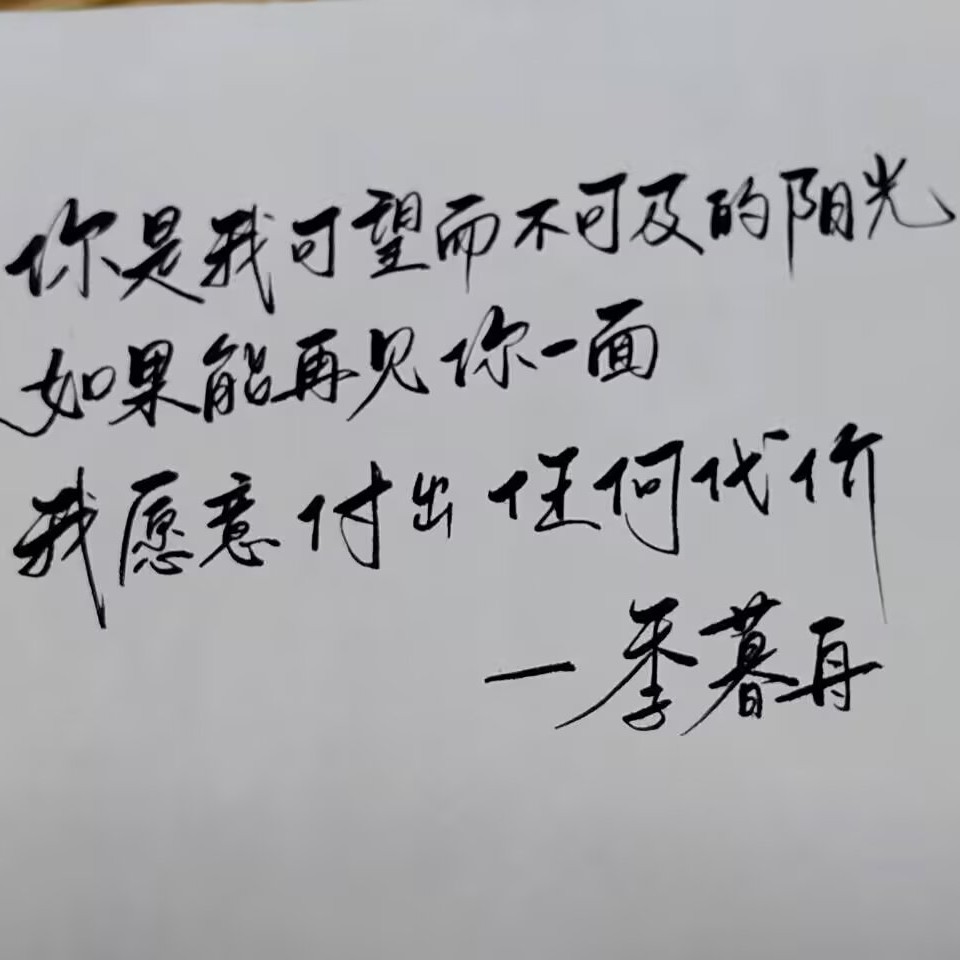 你是我可望而不可及的阳光
如果能再见你一面
我愿意付出任何代价
—季暮再